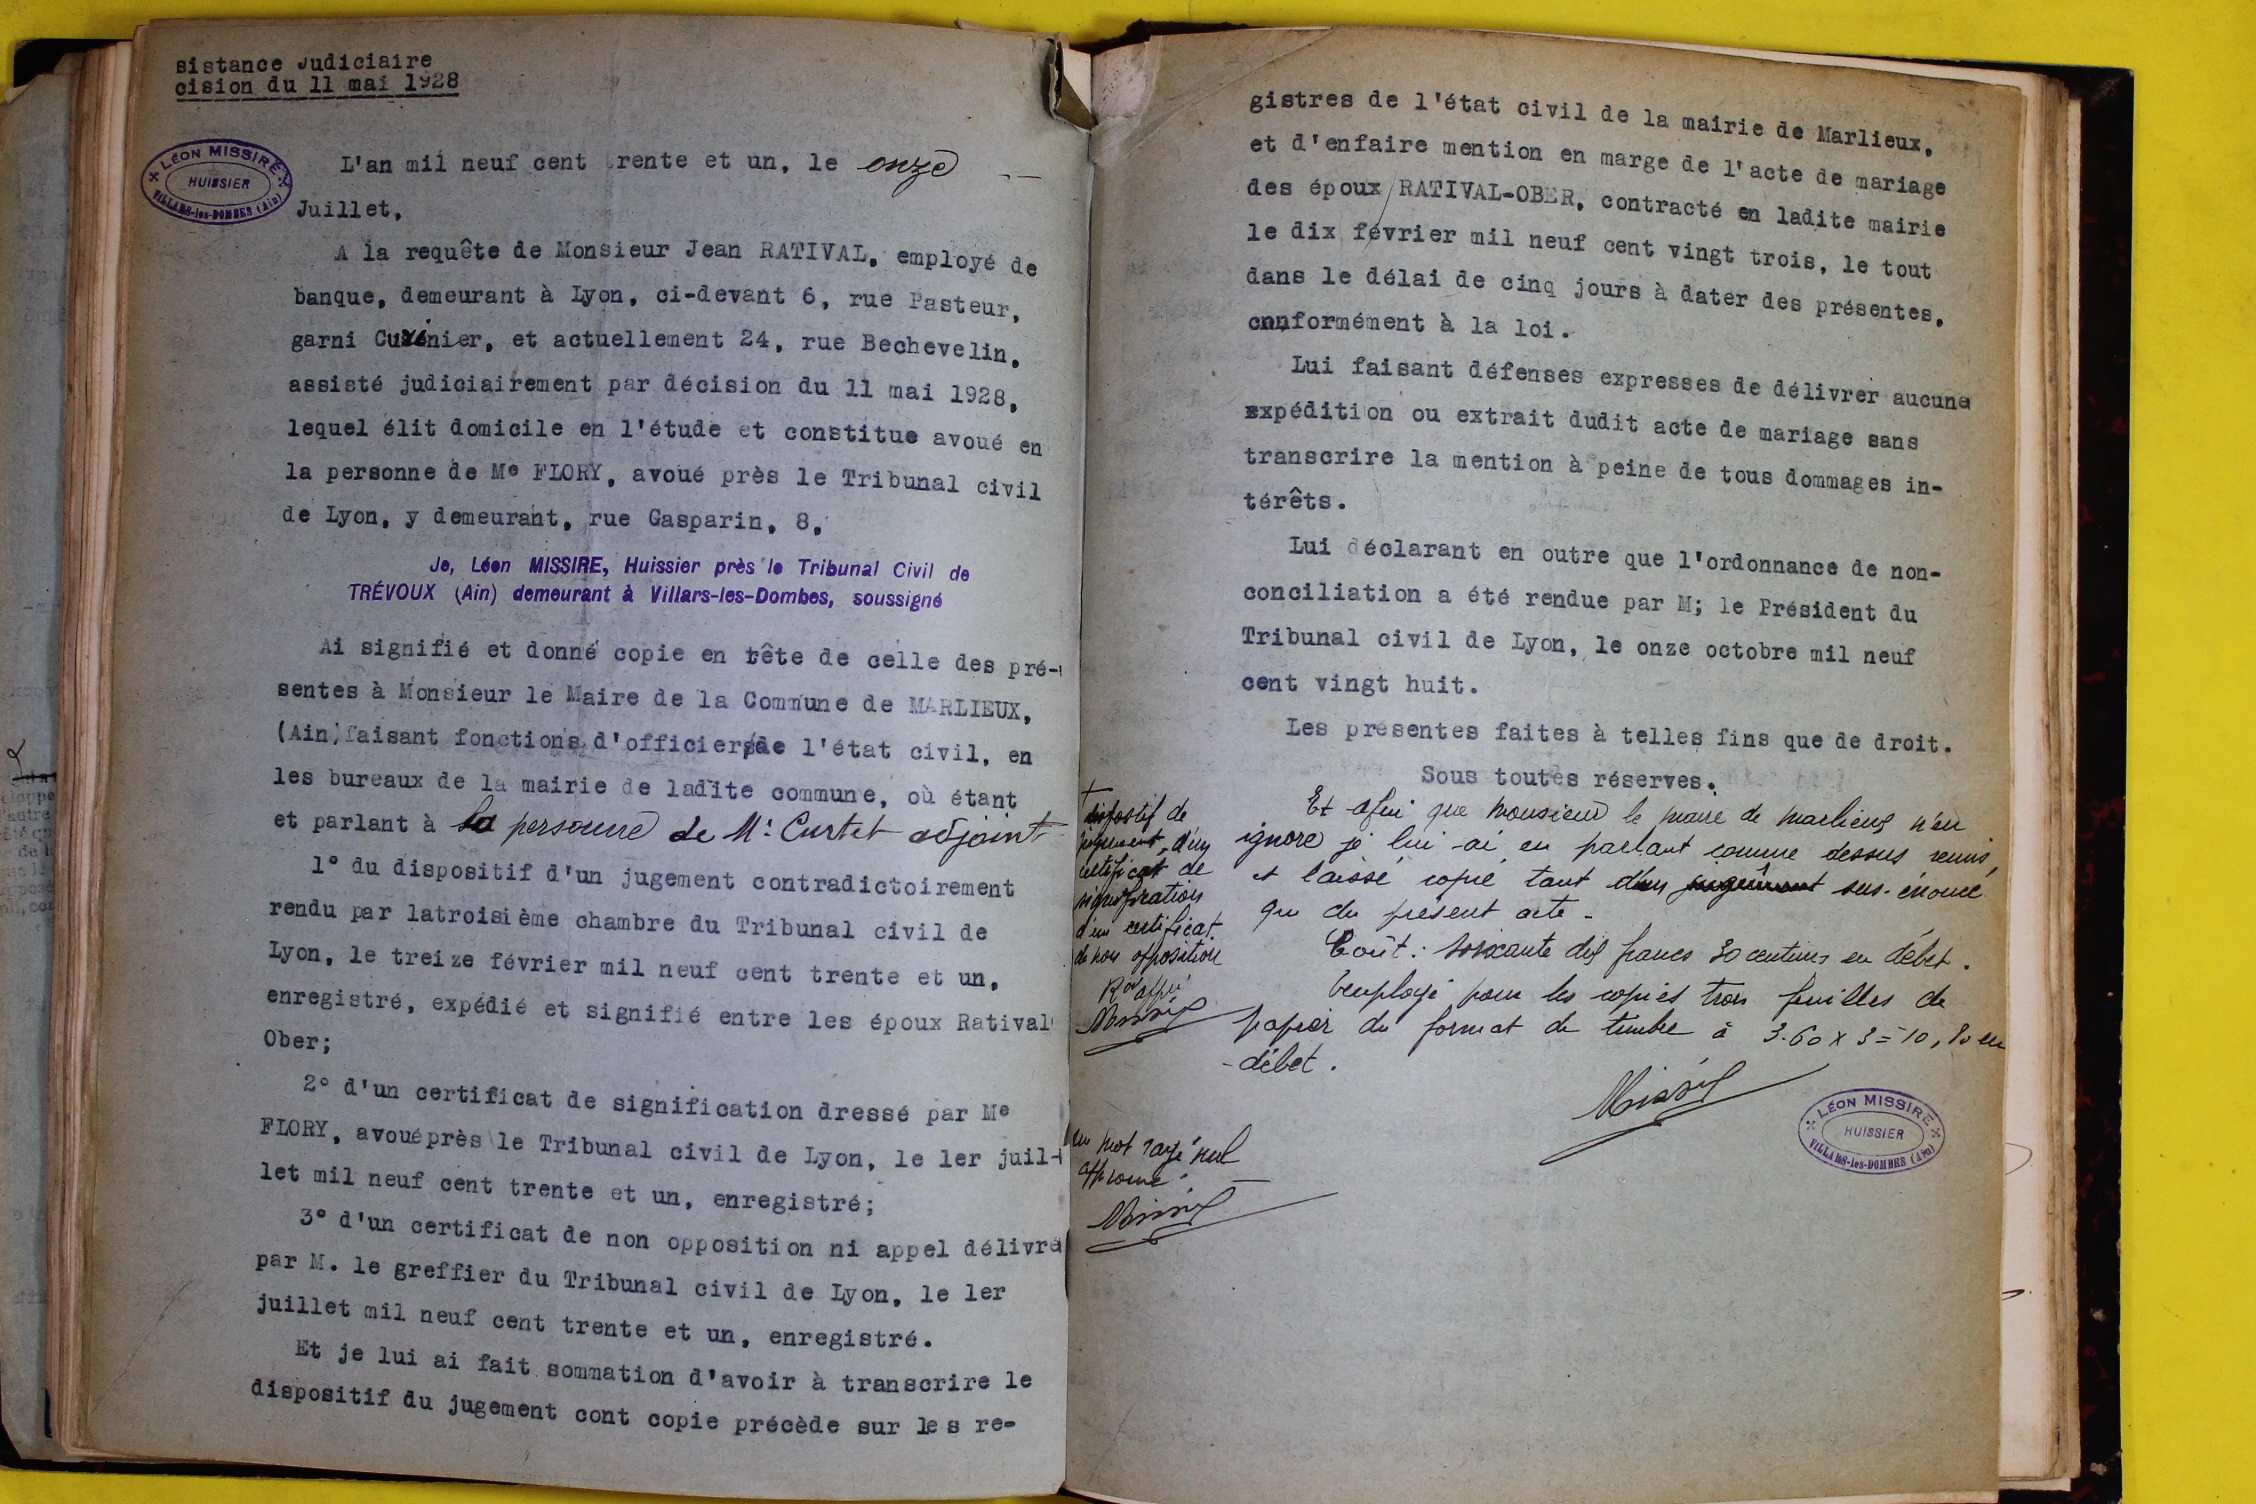 sistance Judiciaire
cision du 11 mai 1928
LÉON MISSIRE
HUISSIER
VILLARS-les-DOMBES (Ain)
L'an mil neuf cent trente et un, le onze
Juillet,
A la requête de Monsieur Jean RATIVAL, employé de
banque, demeurant à Lyon, ci-devant 6, rue Pasteur,
garni Cuxinier, et actuellement 24, rue Bechevelin,
assisté judiciairement par décision du 11 mai 1928,
lequel élit domicile en l'étude et constitue avoué en
la personne de Me FLORY, avoué près le Tribunal civil
de Lyon, y demeurant, rue Gasparin, 8,
Je, Léon MISSIRE, Huissier près le Tribunal Civil de
TRÉVOUX (Ain) demeurant à Villars-les-Dombes, soussigné
Ai signifié et donné copie en tête de celle des pré-
sentes à Monsieur le Maire de la Commune de MARLIEUX,
(Ain)faisant fonctions d'officier de l'état civil, en
les bureaux de la mairie de ladite commune, où étant
et parlant à la personne de Mr Curtet adjoint
1° du dispositif d'un jugement contradictoirement
rendu par latroisième chambre du Tribunal civil de
Lyon, le treize février mil neuf cent trente et un,
enregistré, expédié et signifié entre les époux Ratival
Ober;
2° d'un certificat de signification dressé par Me
FLORY, avouéprès le Tribunal civil de Lyon, le 1er juil-
let mil neuf cent trente et un, enregistré;
3° d'un certificat de non opposition ni appel délivré
par M. le greffier du Tribunal civil de Lyon, le 1er
juillet mil neuf cent trente et un, enregistré.
Et je lui ai fait sommation d'avoir à transcrire le
dispositif du jugement cont copie précède sur les re-
gistres de l'état civil de la mairie de Marlieux,
et d'enfaire mention en marge de l'acte de mariage
des époux RATIVAL-OBER, contracté en ladite mairie
le dix février mil neuf cent vingt trois, le tout
dans le délai de cinq jours à dater des présentes,
cnnformément à la loi.
Lui faisant défenses expresses de délivrer aucune
expédition ou extrait dudit acte de mariage sans
transcrire la mention à peine de tous dommages in-
térêts.
Lui déclarant en outre que l'ordonnance de non-
conciliation a été rendue par M; le Président du
Tribunal civil de Lyon, le onze octobre mil neuf
cent vingt huit.
Les présentes faites à telles fins que de droit.
Sous toutes réserves.
Et afin que Monsieur le maire de marlieux n'en
ignore je lui ai en parlant comme dessus remis
et laissé copie tant d'un jugement sus-énoncé
que du présent acte -
Coût : soixante dix francs 30 centimes en débet.
Employé pour les copies trois feuilles de
papier du format de timbre à 3.60 x 3 = 10,80 en
débet.
Missire
dispositif de
jugement, d'un
certificat de
signification
d'un certificat
de non opposition
Missire
un mot rayé nul
approuvé
Missire
LÉON MISSIRE
HUISSIER
VILLARS-les-DOMBES (Ain)